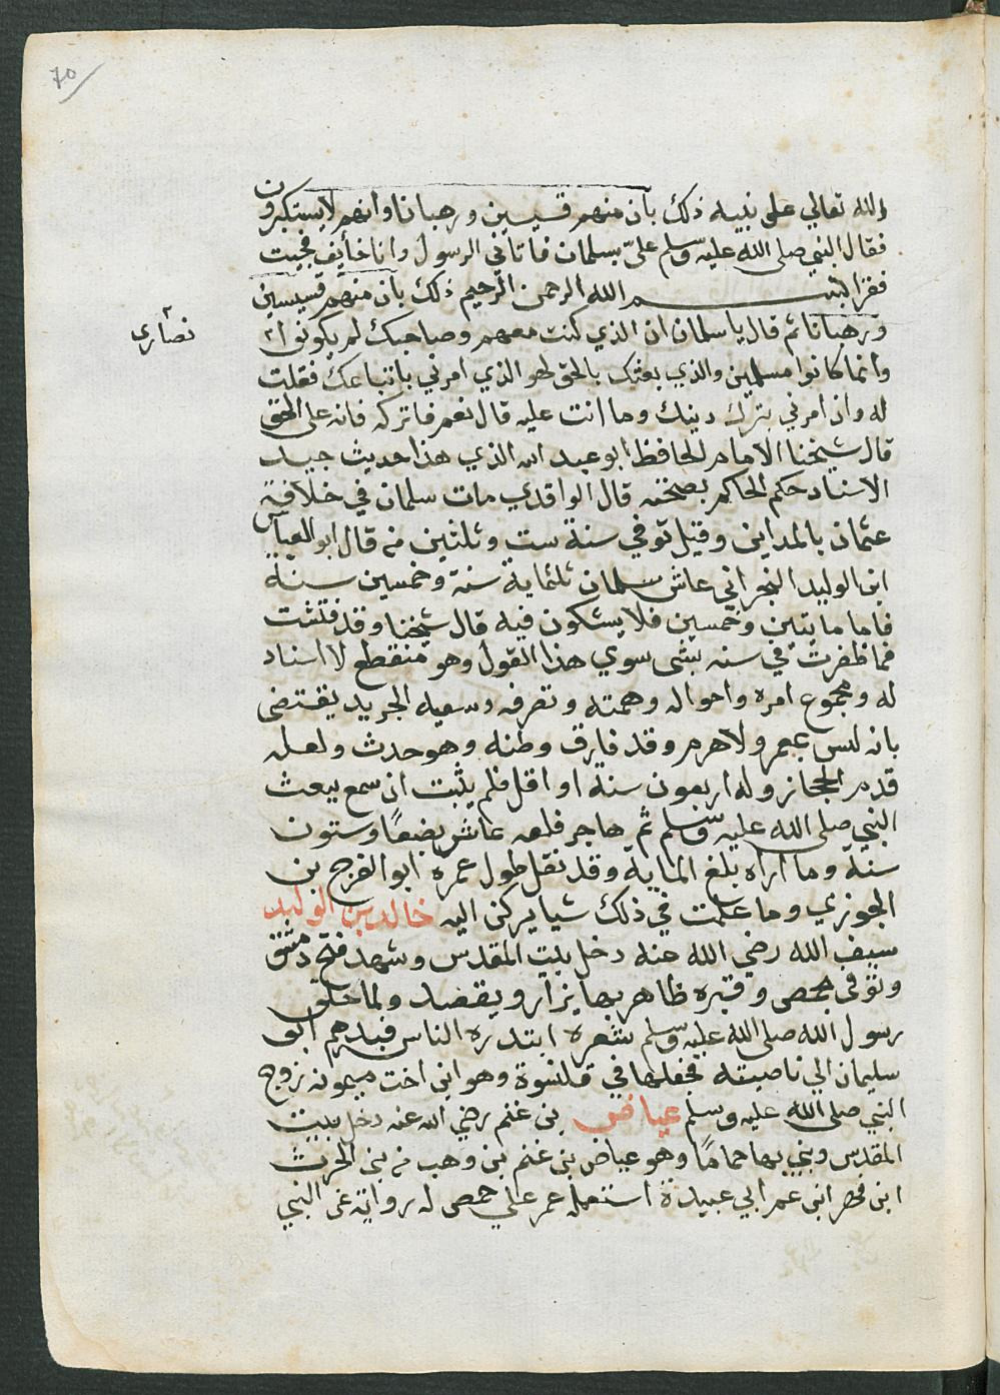 ٧٥
الله تعالي على نبيه ذلك بان منهم قسيسين ورهبانا وانهم لا يستكبرون
فقال النبي صلى الله عليه وسلم عليّ بسلمان فاتاني الرسول وانا خايف فجيت
فقرا بسم الله الرحمن الرحيم ذلك بان منهم قسيسين
ورهبانا ثم قال يا سلمان ان الذي كنت معهم وصاحبك لم يكونوا
نصارى
وانما كانوا مسلمين والذي بعثك بالحق لهو الذي امرني باتباعك فقلت
له وان امرني بترك دينك وما انت عليه قال نعم فاتركه فانه على الحق
قال شيخنا الامام الحافظ ابو عبد الله الذي هذا حديث جيد
الاسناد حكم الحاكم بصحته قال الواقدي مات سلمان في خلافة
عثمان بالمداين وقيل توفي سنة ست وثلثين قال ابو العباس
ابن الوليد النجراني عاش سلمان ثلثماية سنة وخمسين سنة
فاما مايتين وخمسين فلا يشكون فيه قال شيخنا وقد فتشت
فما ظفرت في سنه بشى سوي هذا القول وهو منقطع لا اسناد
له ومجموع امره واحواله وهمته وتصرفه وسعيه الجريد يقتضى
بانه ليس بمعمر ولا هرم وقد فارق وطنه وهو حدث ولعله
قدم الحجاز وله اربعون سنة او اقل فلم يثبت ان سمع ببعث
النبي صلى الله عليه وسلم ثم هاجر فلعه عاش بضعًا وستون
سنة وما اراه بلغ الماية وقد نقل طول عمره ابو الفرج بن
الجوزي وما علمت في ذلك شيا يركن اليه خالد بن الوليد
سيف الله رضي الله عنه دخل بيت المقدس وشهد فتح دمشق
وتوفى بحمص وقبره ظاهر بها يزار ويقصد ولما حلق
رسول الله صلى الله عليه وسلم شعره ابتدره الناس فبدرهم ابو
سليمان الي ناصيته فجعلها في قلنسوة وهو ابن اخت ميمونه زوج
النبي صلى الله عليه وسلم عياض بن غنم رضي الله عنه دخل بيت
المقدس وبني بها حمامًا وهو عياض بن غنم بن وهب من بنى الحرث
ابن فهر ابن عم ابي عبيدة استعمله عمر علي حمص له رواية عن النبي